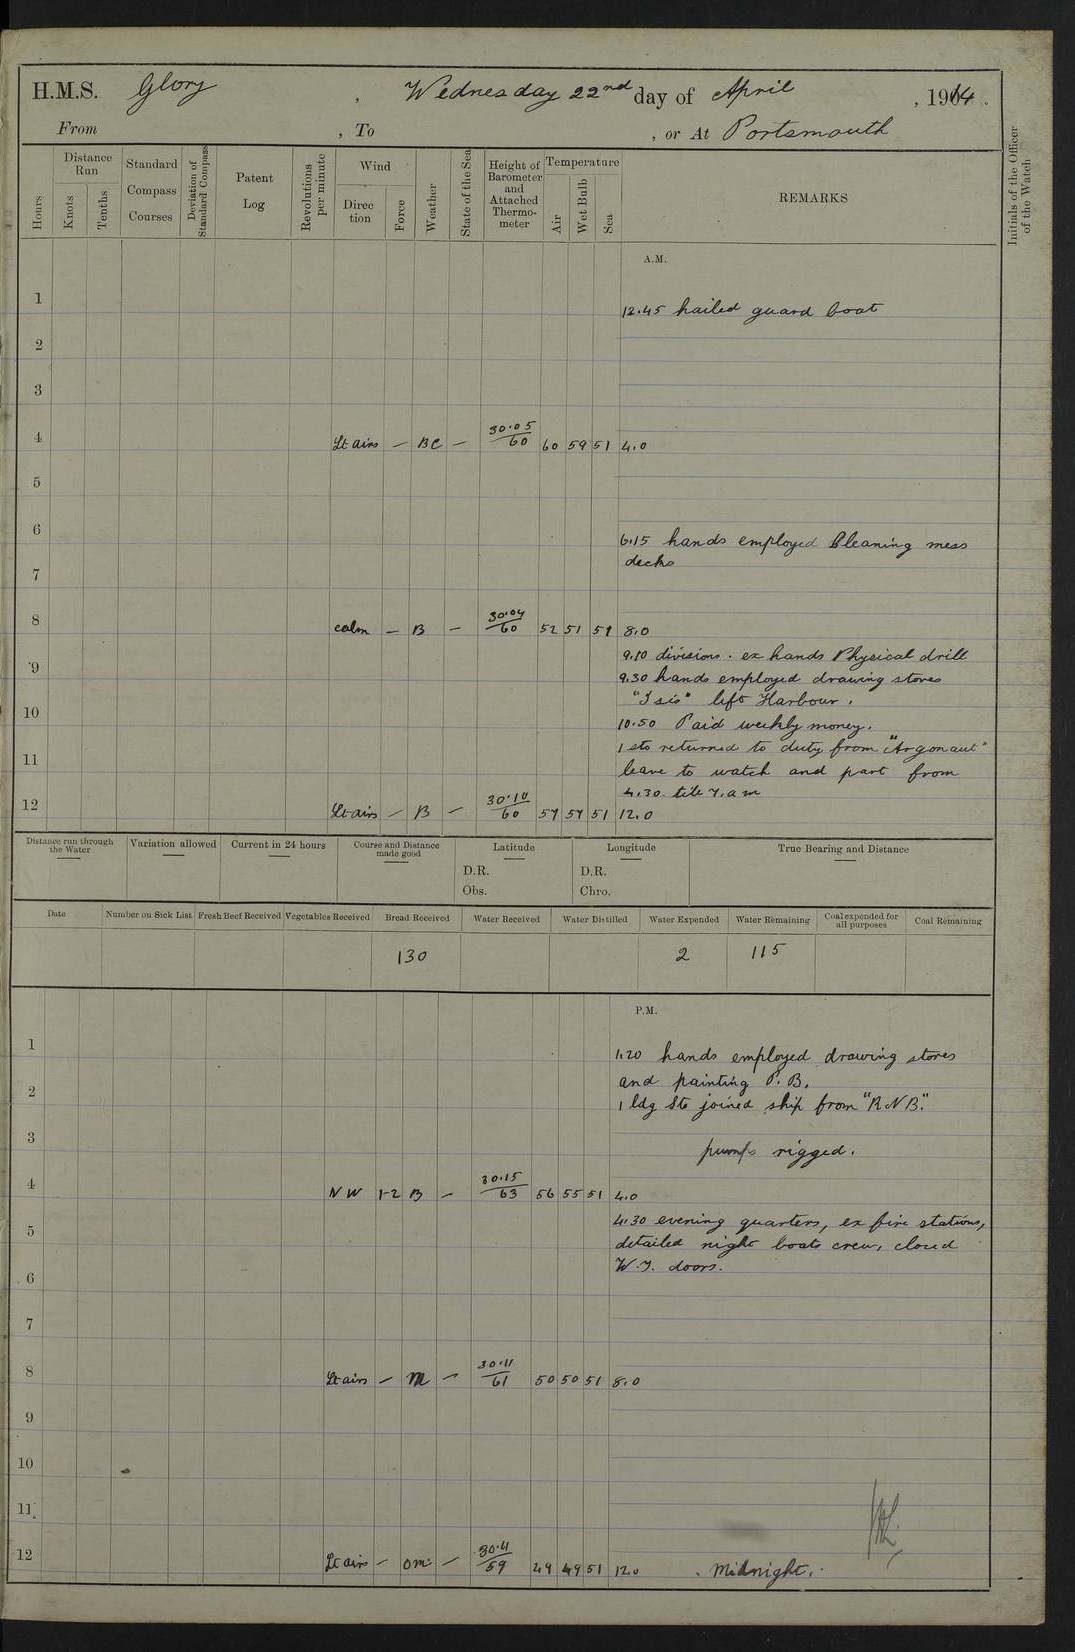 H.M.S. Glory , Wednesday 22nd day of April , 1914 .
From , To , or At Portsmouth
Hours
Distance Run
Knots
Tenths
Standard Compass Courses
Deviation of Standard Compass
Patent Log
Revolutions per minute
Wind
Direction
Force
Weather
State of the Sea
Height of Barometer and Attached Thermometer
Temperature
Air
Wet Bulb
Sea
REMARKS
Initials of the Officer of the Watch
A.M.
1
12.45 hailed guard boat
2
3
4 Lt airs — BC — 30.05/60 60 59 51 4.0
5
6
6.15 hands employed Cleaning mess
decks
7
8 calm — B — 30.04/60 52 51 51 8.0
9.10 divisions. ex hands Physical drill
9
9.30 hands employed drawing stores
"Isis" left Harbour.
10
10.50 Paid weekly money.
1 sto returned to duty from "Argonaut"
11
leave to watch and part from
4.30 till 7.am
12 Lt airs — B — 30.10/60 57 57 51 12.0
Distance run through the Water
Variation allowed
Current in 24 hours
Course and Distance made good
Latitude
D.R.
Obs.
Longitude
D.R.
Chro.
True Bearing and Distance
Date
Number on Sick List
Fresh Beef Received
Vegetables Received
Bread Received
Water Received
Water Distilled
Water Expended
Water Remaining
Coal expended for all purposes
Coal Remaining
130 2 115
P.M.
1
1.20 hands employed drawing stores
and painting P.B.
2
1 ldg Sto joined ship from "RNB."
3
pumps rigged.
4 NW 1-2 B — 30.15/63 56 55 51 4.0
4.30 evening quarters, ex fire stations,
5
detailed night boats crew, closed
W.T. doors.
6
7
8 Lt airs — m — 30.11/61 50 50 51 8.0
9
10
11
12 Lt airs — om — 30.11/59 49 49 51 12.0 Midnight.